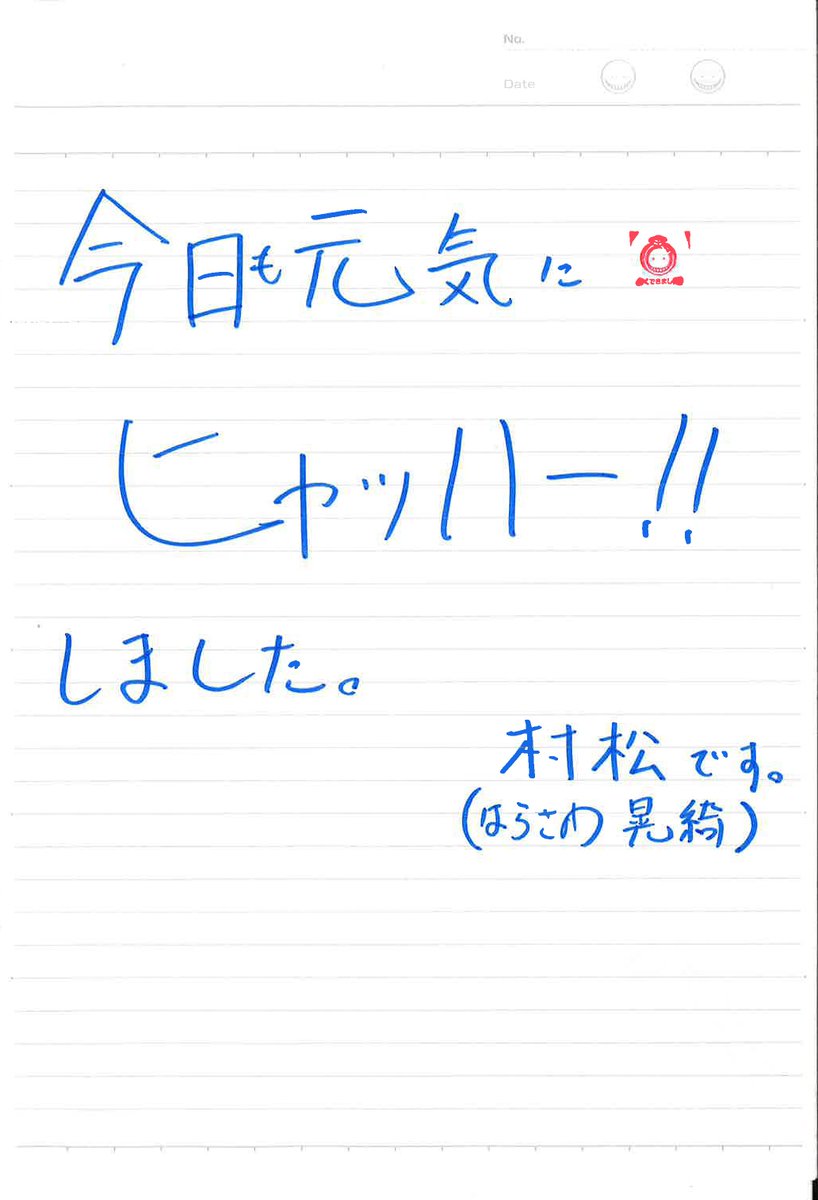 No.
Date
今日も元気に
ヒャッハー!!
しました。
村松です。
(はらさわ 晃綺)